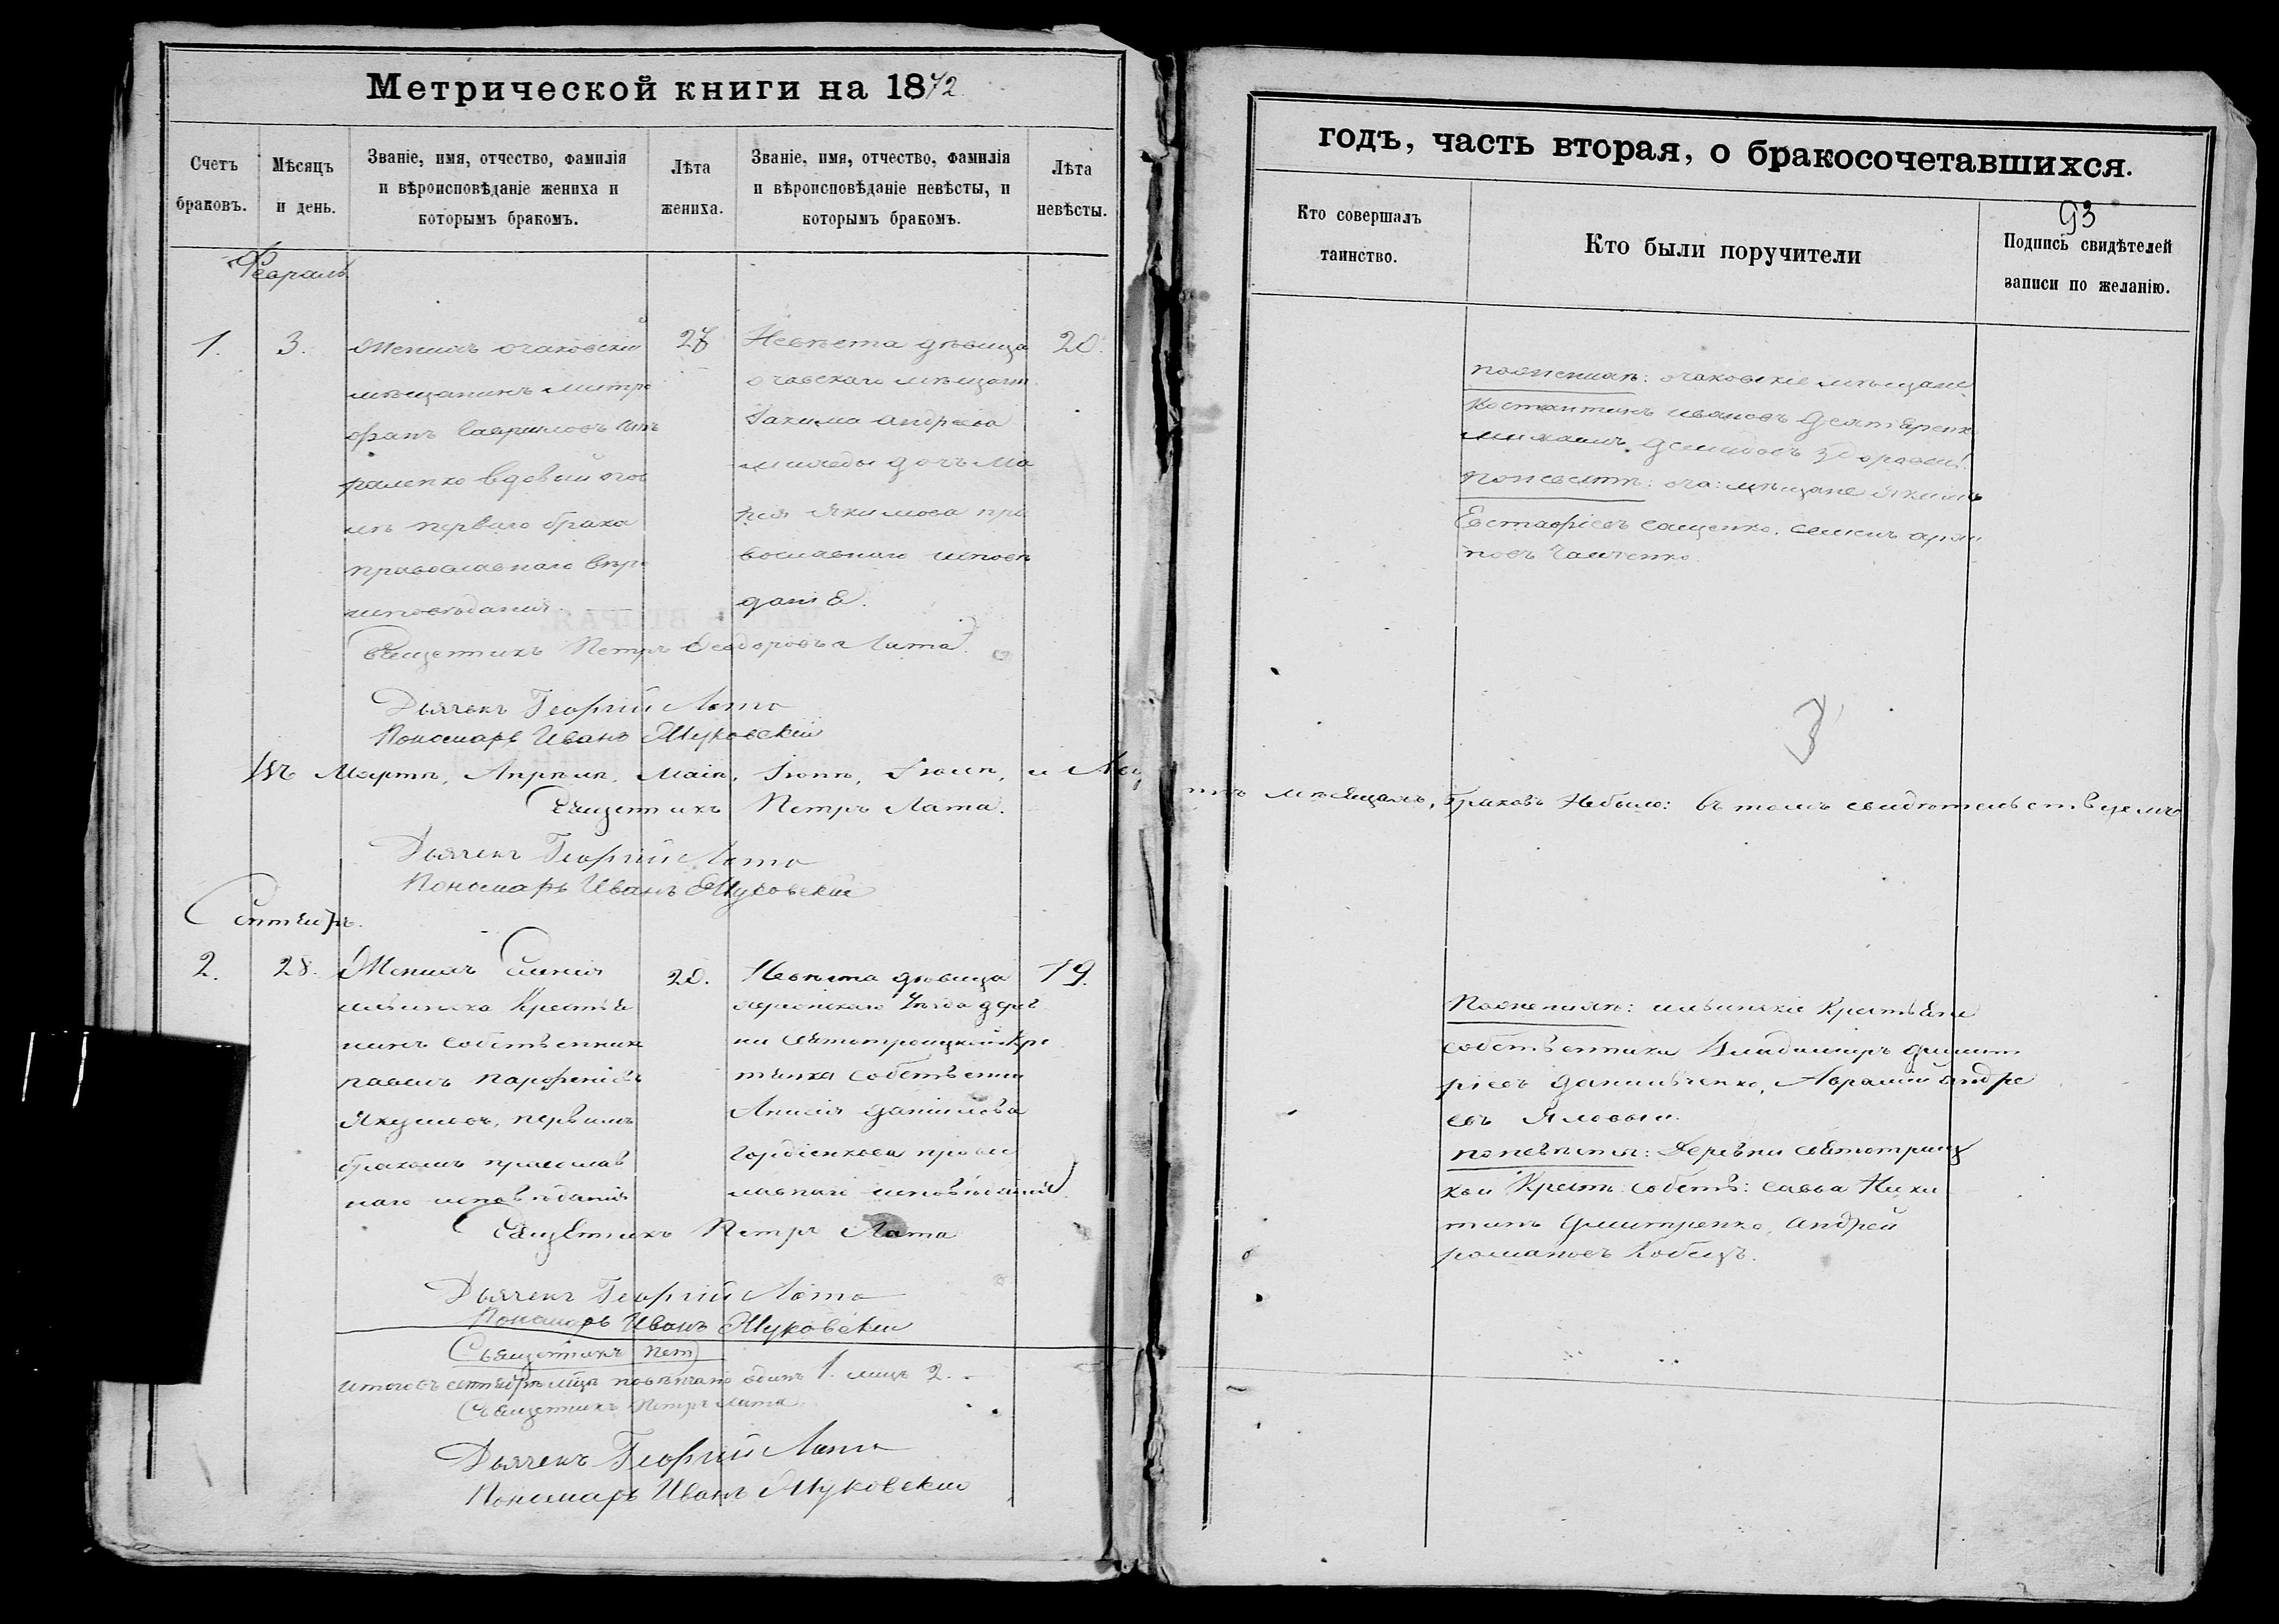 Метрической книги на 1872
Счетъ браковъ.
Мѣсяцъ и день.
Званіе, имя, отчество, фамилія
и вѣроисповѣданіе жениха и
которымъ бракомъ.
Лѣта жениха.
Званіе, имя, отчество, фамилія
и вѣроисповѣданіе невѣсты, и
которымъ бракомъ.
Лѣта невѣсты.
Февраль
1.
3.
Женихъ очаковскій
мѣщанинъ митро
фанъ Гавриловъ
вдовый
первого брака
православнаго вѣро
исповѣданія.
27
Невѣста дѣвица
очавскаго мѣщани
Іакима андреева
дочь Ма
рія Якимова пра
вославнаго исповѣ
даніе.
20.
Священникъ Петръ Феодоровъ Лата
Дьячекъ Георгій Лата
Пономарь Иванъ Жуковскій
Въ Мартѣ, Апрѣлѣ, Маіѣ, Іюнѣ, Іюлѣ, и Авгу
Священникъ Петръ Лата.
Дьячекъ Георгій Лата
Пономарь Иванъ Жуковскій
Сентябрь.
2.
28.
Женихъ
Крестья
нинъ собственник
павелъ парфеніевъ
первымъ
бракомъ православ
наго исповѣданія
20.
Невѣста дѣвица
херсонскаго Уѣзда дерев
ни святотроицкой кре
стьянка собственни
Анисія данилова
Гордіенкова правос
лавнаго исповѣданія
19.
Священникъ Петръ Лата
Дьячекъ Георгій Лата
Пономарь Иванъ Жуковскій
Священникъ Пет
итого въ сентябрѣ мцѣ повѣнчано одинъ 1. лицъ 2.
Священникъ Петръ Лата
Дьячекъ Георгій Лата
Пономарь Иванъ Жуковскій
годъ, часть вторая, о бракосочетавшихся.
93
Кто совершалъ таинство.
Кто были поручители
Подпись свидѣтелей
записи по желанію.
поженихѣ: очаковскіе мѣщане
Костянтинъ ивановъ
михаилъ демидовъ
поневѣстѣ: оча: мѣщане Якимъ
Евстафіевъ сащенко, семенъ
3
мѣсяцахъ, браковъ Небыло: въ томъ свидѣтельствуемъ
Поженихѣ: Крестьяне
собственники Владимиръ димит
ріевъ данильченко, Аврамій андре
евъ Яловый.
поневѣстѣ: Деревни святотроиц
кой Крест: собств: савва Ники
тинъ дмитренко, андрей
романовъ Кобецъ.